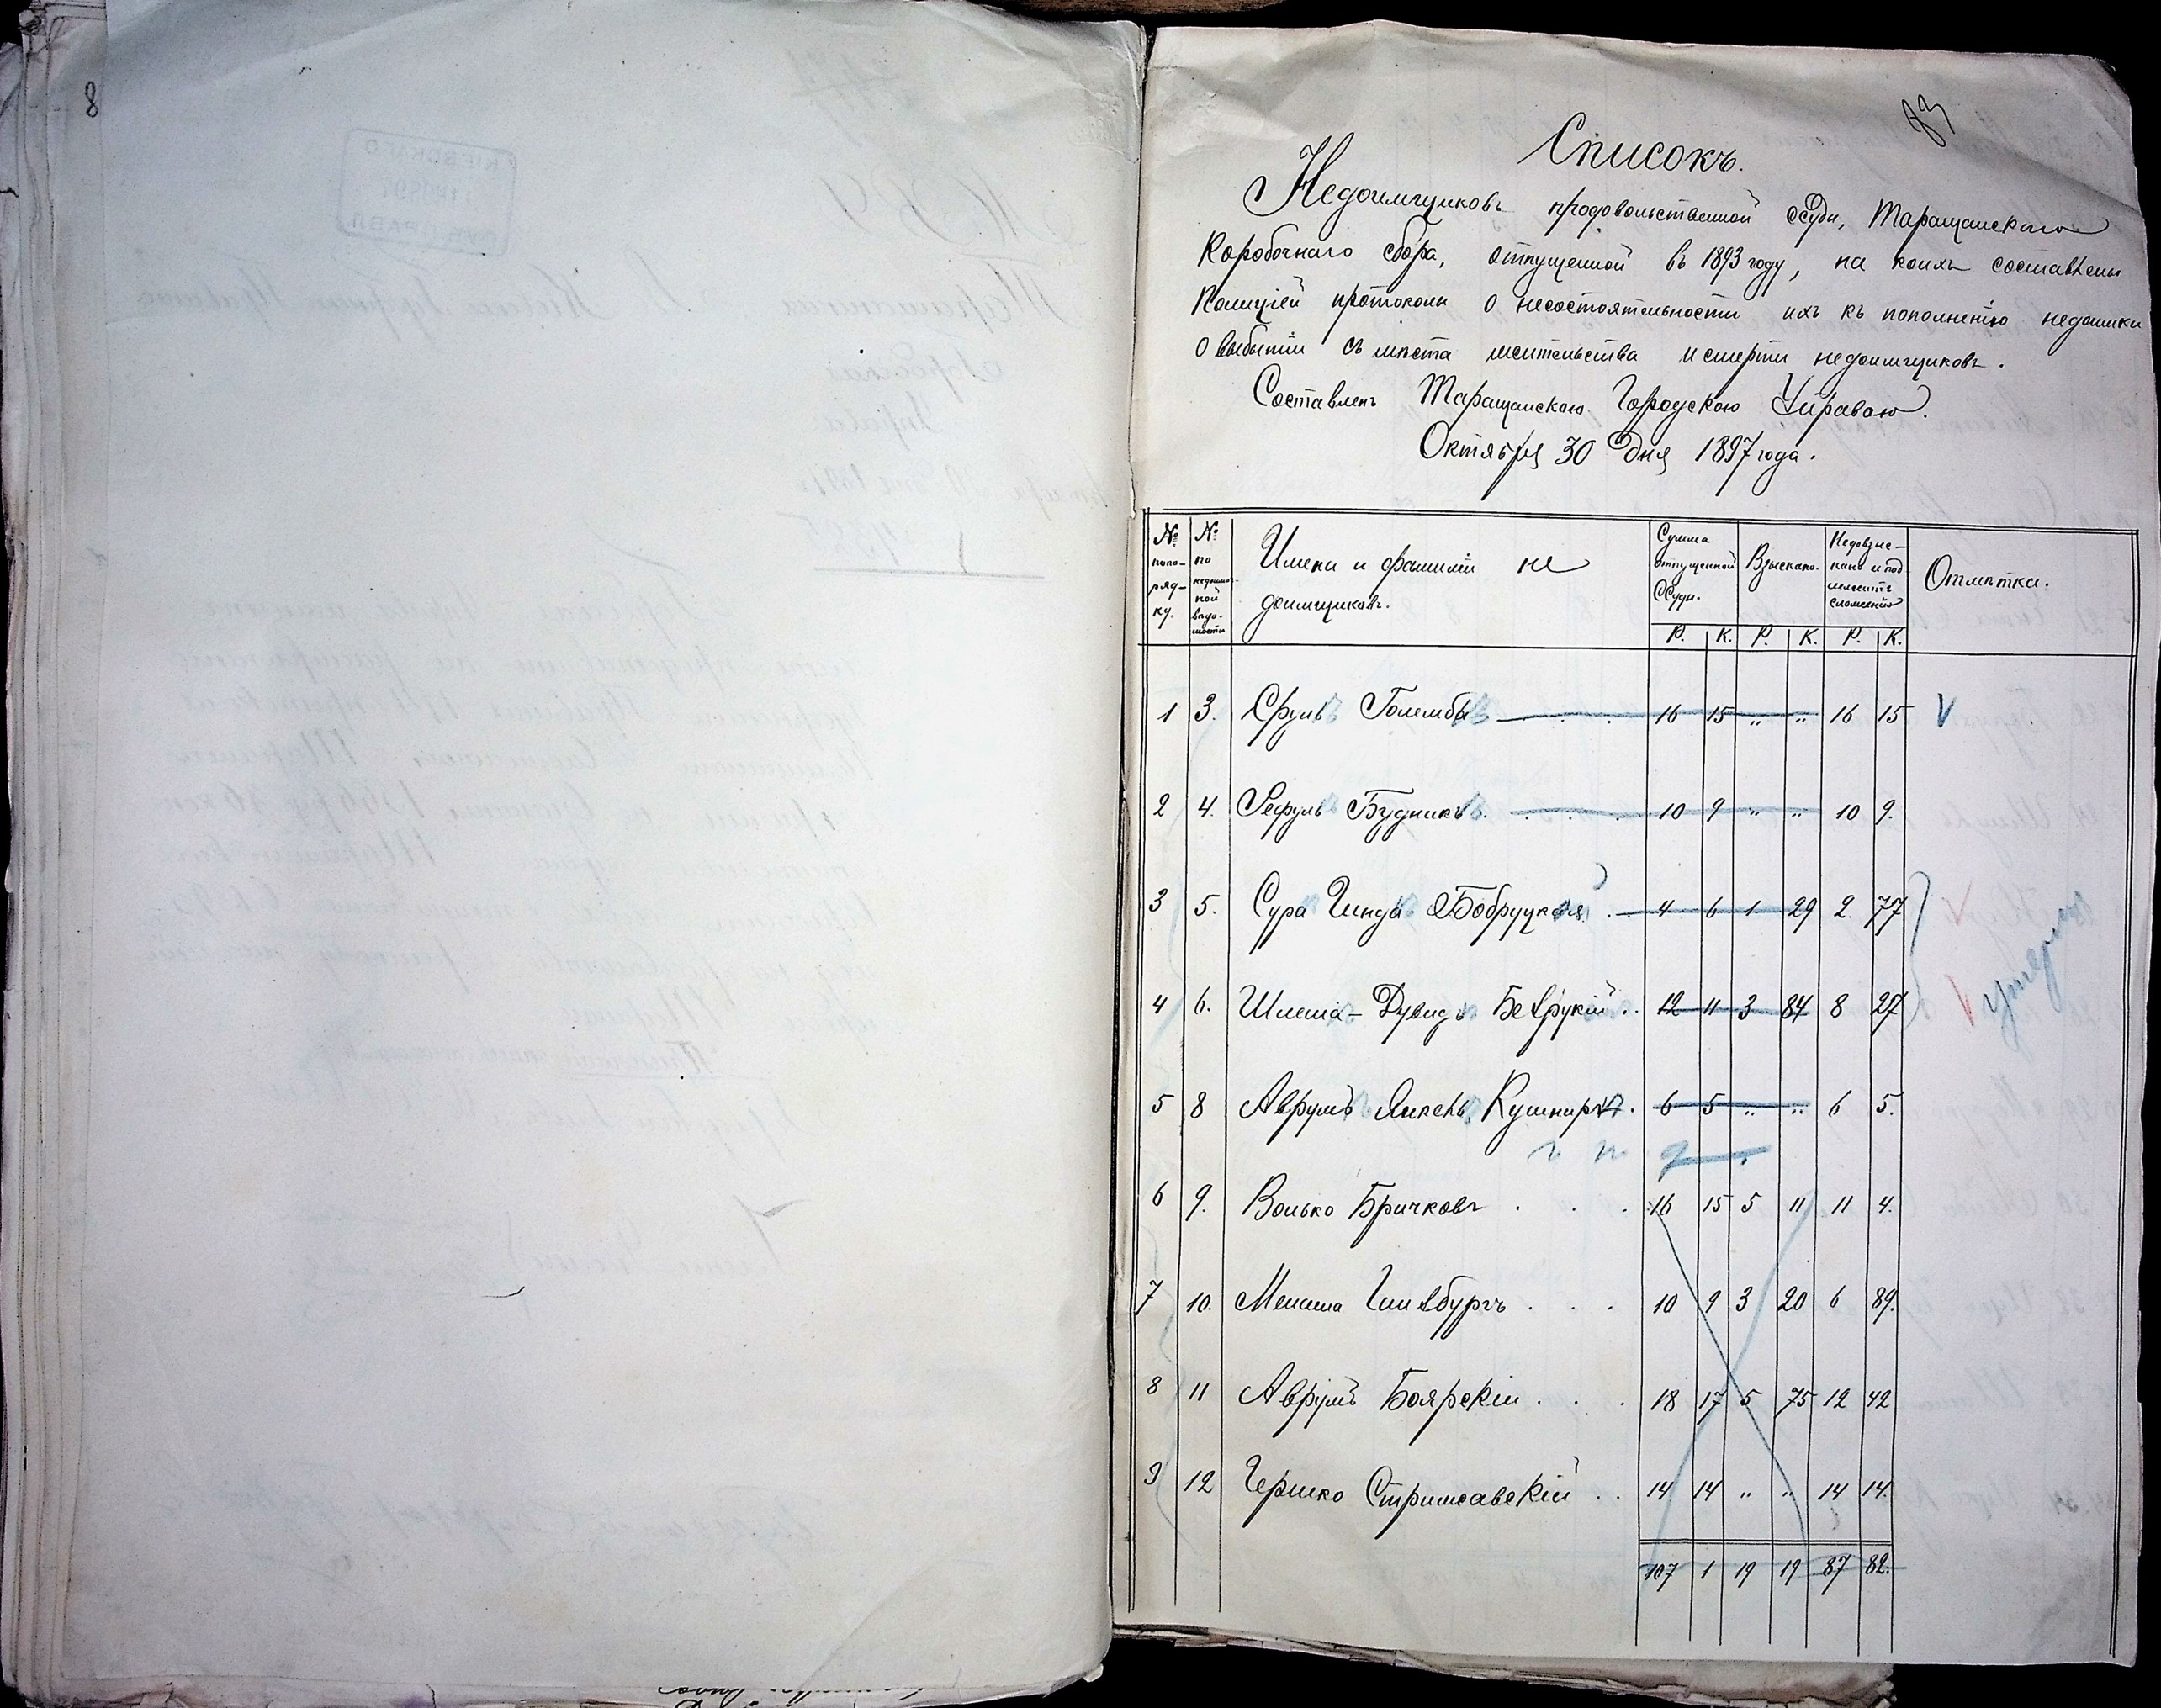 8
83
Списокъ.
Недоимщиковъ продовольственной ссуды, Таращанскаго
Коробочнаго сбора, отпущенной въ 1893 году, на коихъ составлены
Полиціей протоколы о несостоятельности ихъ къ пополненію недоимки
о выбытіи съ мѣста жительства и смерти недоимщиковъ.
Составленъ Таращанскою Городскою Управою.
Октября 30 дня 1897 года.
№ по по-рядку. | № по недоимочной вѣдомости | Имена и фамиліи недоимщиковъ. | Сумма отпущенной ссуды. Р. К. | Взыскано. Р. К. | Недовзыскано и подлежитъ сложенію Р. К. | Отмѣтка.
1 3. Сруль Големба 16 15 " " 16 15 V
2 4. Рефуль Будникъ 10 9 " " 10 9.
3 5. Сура Гинда Бобруцкая 4 6 1 29 2. 77 V
4 6. Шлема-Дувидъ 12 11 3 84 8 27 V умерли
5 8 Аврумъ Янкель Кушниръ 6 5 " " 6 5.
6 9. Волько Бричковъ 16 15 5 11 11 4.
7 10. Менаша Гинзбургъ 10 9 3 20 6 89.
8 11 Аврумъ Боярскій 18 17 5 75 12 42
9 12 Гершко Стрижавскій 14 14 " " 14 14.
107 1 19 19 87 82.